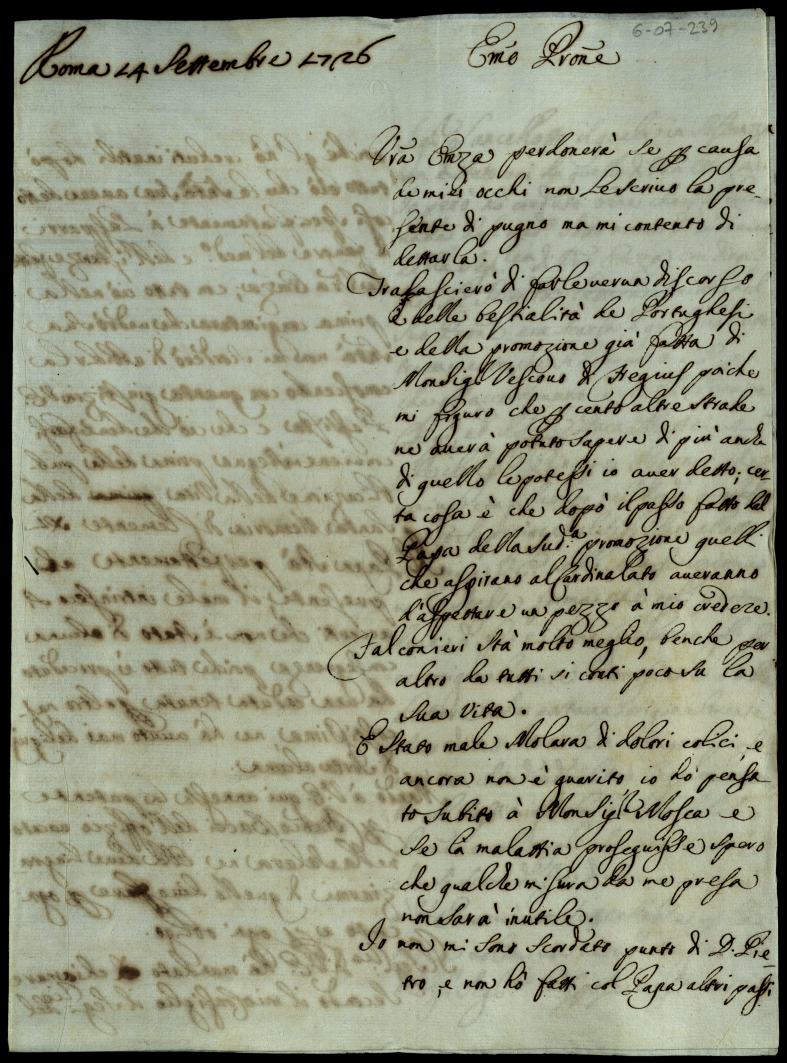 6-07-239
Roma 14 Settembre 1726
Emo Prone
Vra Emza perdonerà se p causa
de miei occhi non Le scrivo la pre-
sente di pugno ma mi contento di
dettarla.
Tralascierò di farle verun discorso
e delle bestialità de Portughesi
e della promozione già fatta di
Monsig.r Vescovo di Fregius poiche
mi figuro che p cento altre strade
ne averà potuto sapere di più anche
di quello le potessi io aver detto; cer-
ta cosa è che dopò il passo fatto dal
Papa della sud.a promozione quelli
che aspirano al Cardinalato averanno
d'aspettare un pezzo à mio credere.
Falconieri stà molto meglio, benche per
altro da tutti si conti poco su la
sua vita.
E stato male Molara di dolori colici, e
ancora non è guarito io hò pensa
to subito à Monsig.r Mosca e
se la malattia proseguisse spero
che qualche misura da me presa
non sarà inutile.
Io non mi sono scordato punto di D. Pie-
tro, e non hò fatti col Papa altri passi